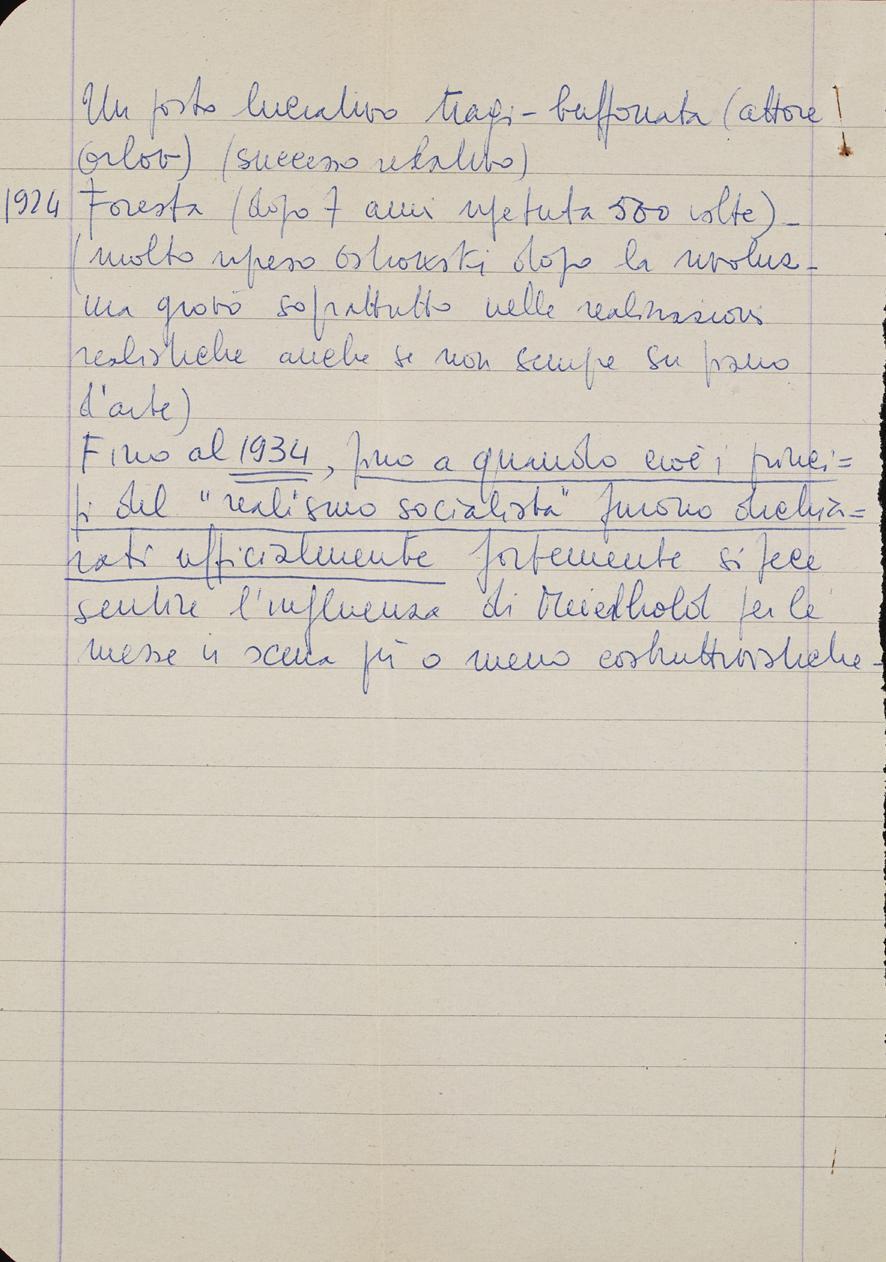 Un posto lucrativo tragi-buffonata (attore
Orlov) (successo relativo)
1924 Foresta (dopo 7 anni ripetuta 500 volte)-
(molto ripeso Ostrowski dopo la rivoluz-
ma giovò soprattutto nelle realizzazioni
realistiche anche se non sempre su piano
d'arte)
Fino al 1934, fino a quando cioè i princi=
pi del "realismo socialista" furono dichia=
rati ufficialmente fortemente si fece
sentire l'influenza di Meiedhold per le
messe in scena più o meno costruttivistiche-